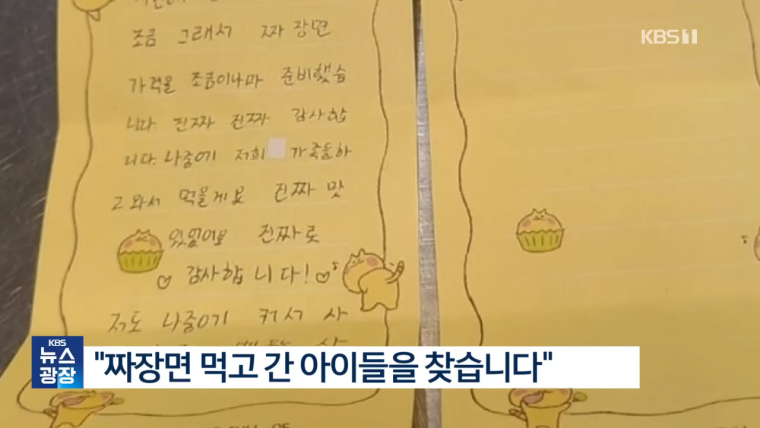 KBS 1
조금 그래서 짜장면
가격을 조금이나마 준비했습
니다. 진짜 진짜 감사합
니다. 나중에 저희 가족들하
고 와서 먹을게요 진짜 맛
있었어요 진짜로
감사합니다!
저도 나중에 커서 사
KBS
뉴스
광장
"짜장면 먹고 간 아이들을 찾습니다"